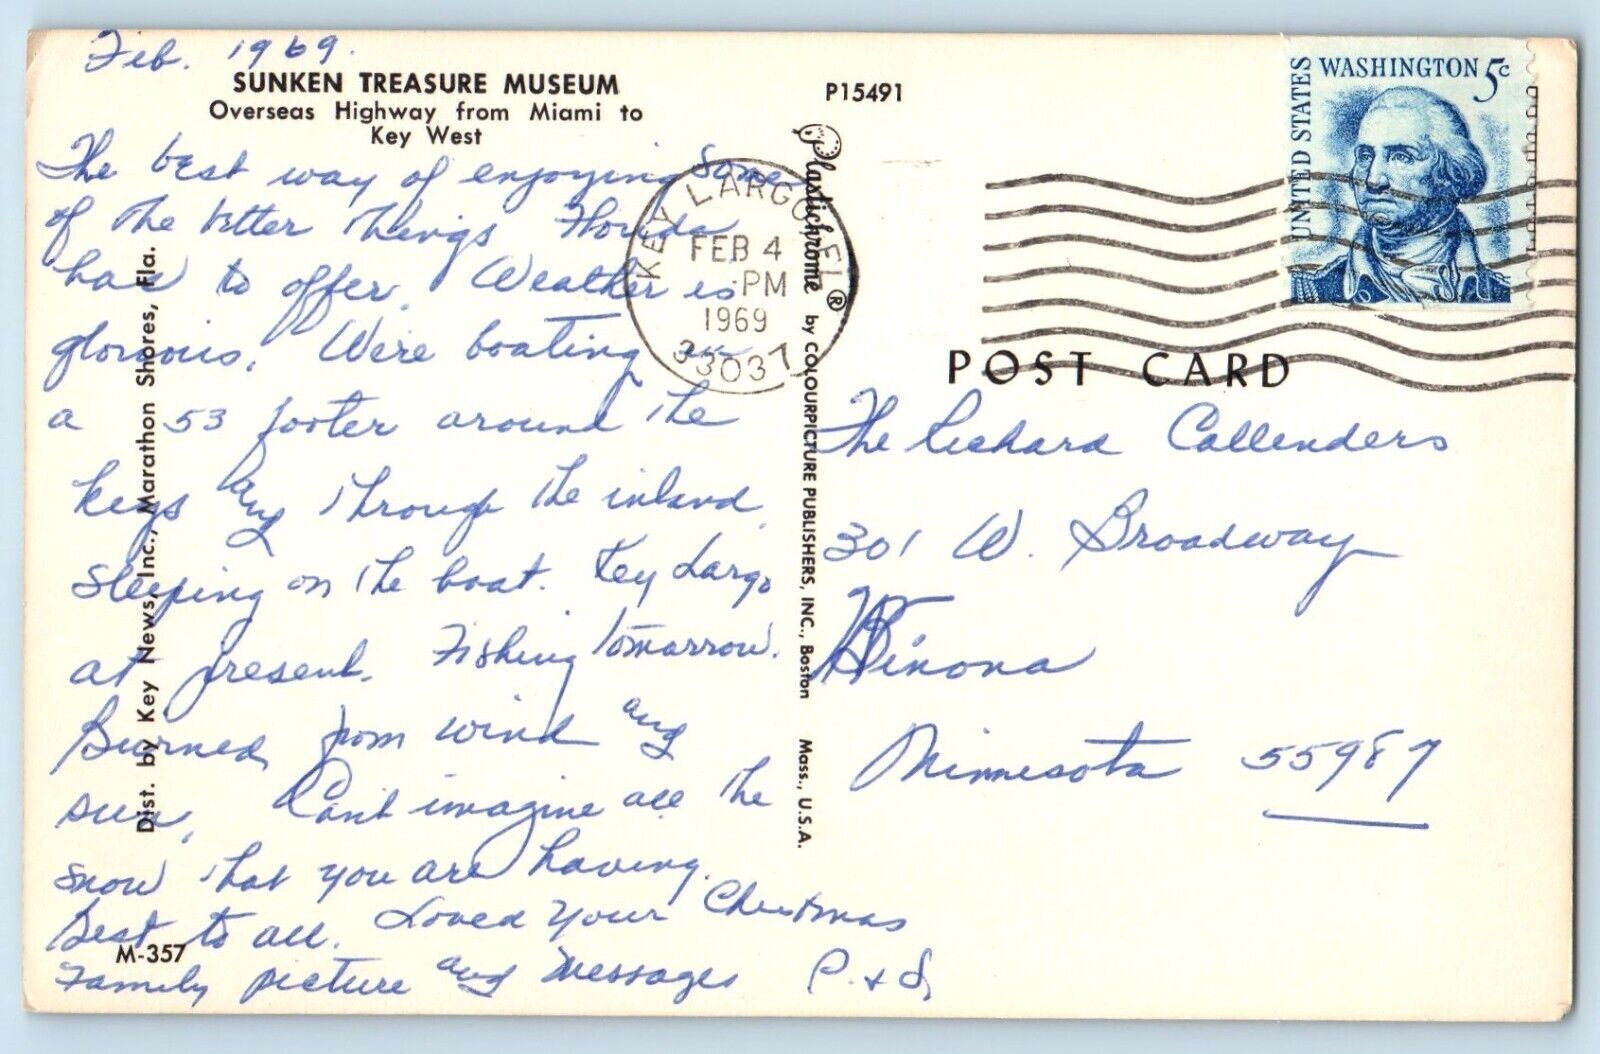 Feb. 1969.
SUNKEN TREASURE MUSEUM
Overseas Highway from Miami to
Key West
The best way of enjoying some
of the better things Florida
has to offer. Weather is
glorious. We're boating in
a 53 footer around the
keys and through the inland,
sleeping on the boat. Key Largo
at present. Fishing tomorrow.
Burned from wind and
sun. Can't imagine all the
snow that you are having.
Best to all. Loved your Christmas
Family picture and messages P. + S.
M-357
Dist. by Key News, Inc., Marathon Shores, Fla.
P15491
Plastichrome ® by COLOURPICTURE PUBLISHERS, INC., Boston Mass., U.S.A.
KEY LARGO FL
FEB 4
PM
1969
33037
UNITED STATES
WASHINGTON 5c
POST CARD
The Richard Callenders
301 W. Broadway
Winona
Minnesota 55987